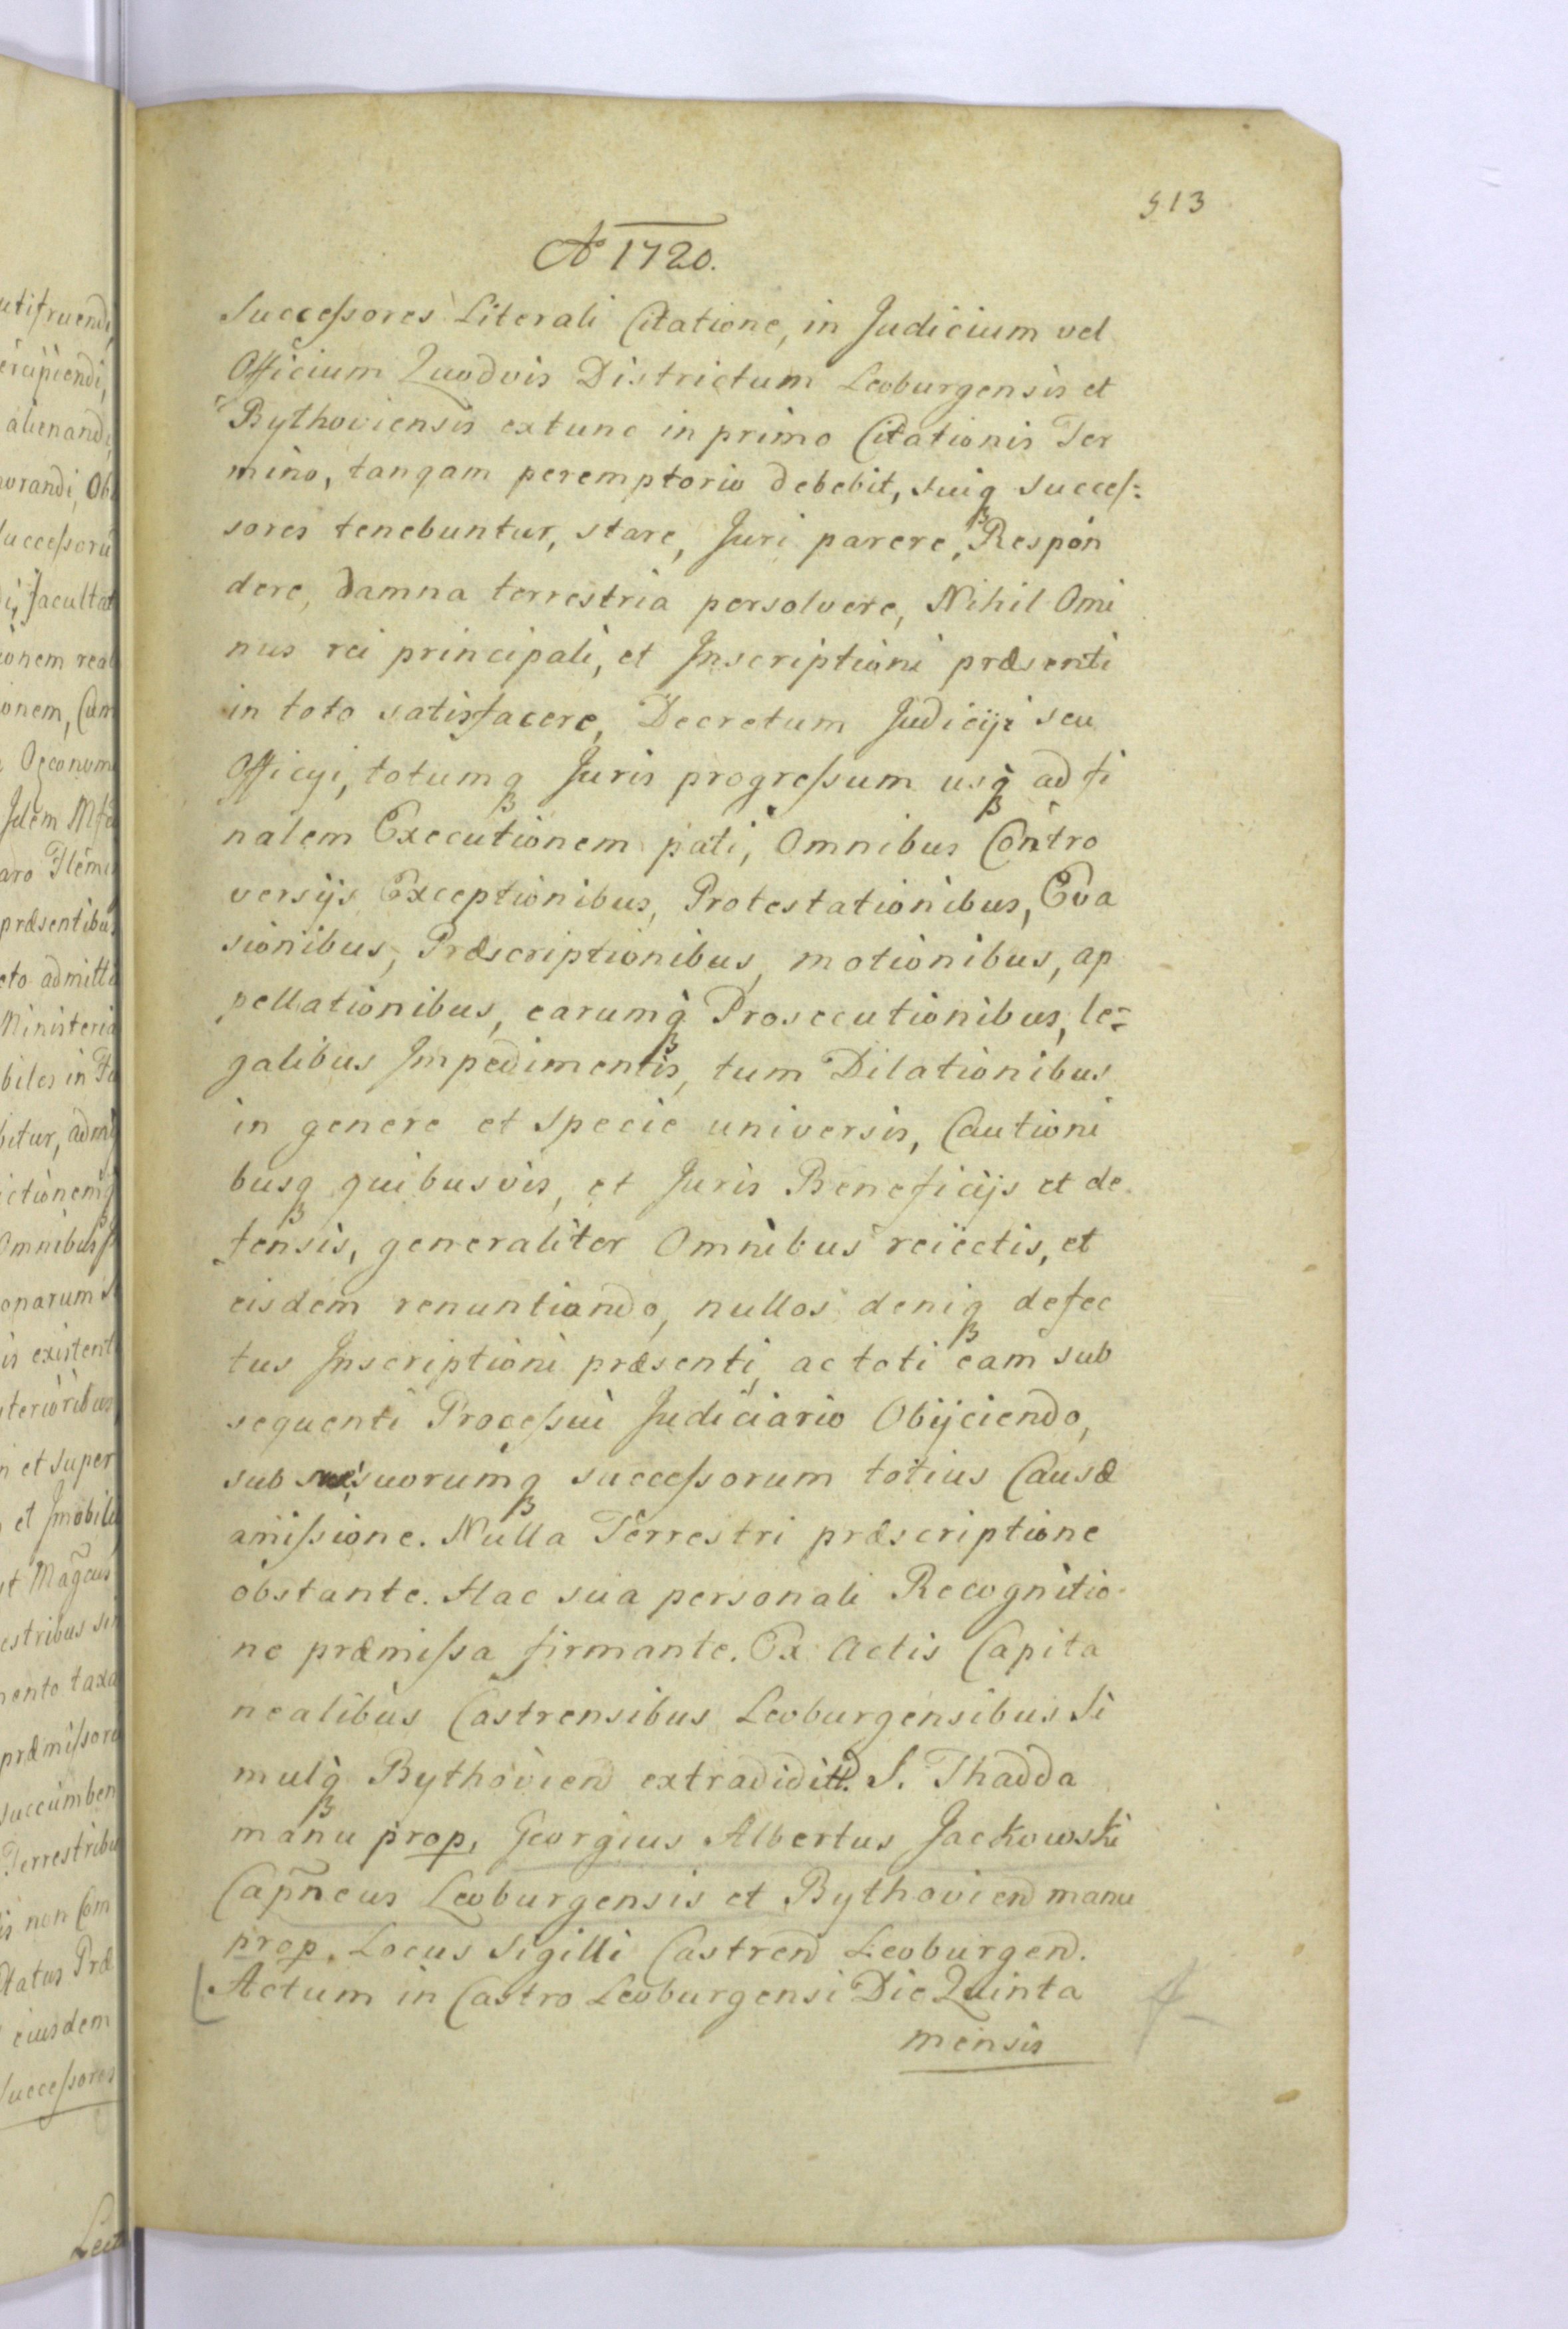 513
Aō 1720.
Successores Literali Citatione, in Judicium vel
Officium Quodvis Districtum Leoburgensis et
Bythoviensis extunc in primo Citationis Ter
mino, tanqam peremptorio debebit, suiqꝫ succes=
sores tenebuntur, stare, Juri parere, Respon
dere, damna terrestria persolvere, Nihil Omi
nus rei principali, et Inscriptioni præsenti
in toto satisfacere, Decretum Judicÿi seu
Officÿi, totumqꝫ Juris progressum usqꝫ ad fi
nalem Executionem pati, Omnibus Contro
versijs Exceptionibus, Protestationibus, Eva
sionibus, Præscriptionibus, motionibus, ap
pellationibus, earumqꝫ Prosecutionibus, le=
galibus Impedimentis, tum Dilationibus
in genere et specie universis, Cautioni
busqꝫ quibusvis, et Juris Beneficijs et de
fensis, generaliter Omnibus reiectis, et
eisdem renuntiando, nullos deniqꝫ defec
tus Inscriptioni præsenti, ac toti eam sub
sequenti Processui Judiciario Obijciendo,
sub suæ, suorumqꝫ successorum totius Causæ
amissione. Nulla Terrestri præscriptione
obstante. Hac sua personali Recognitio
ne præmissa firmante. Ex Actis Capita
nealibus Castrensibus Leoburgensibus Si
mulqꝫ Bythoviend extradiditt. S. Thadda
manu prop, Georgius Albertus Jackowski
Capñeus Leoburgensis et Bythoviend manu
prop. Locus Sigilli Castrend Leoburgend.
Actum in Castro Leoburgensi Die Quinta
mensis
utifruendi,
alienandi,
Successorū
facultat
ionem real
onem, Cum
Idem
præsentibus
eto admitti
Ministeria
biles in
bitur,
Omnibus
onarum
is existent
teriòribus
n et super
et Imobile
et
estribus
mento taxa
præmissoru
succumben
Terrestribu
is non Com
eiusdem
Successores